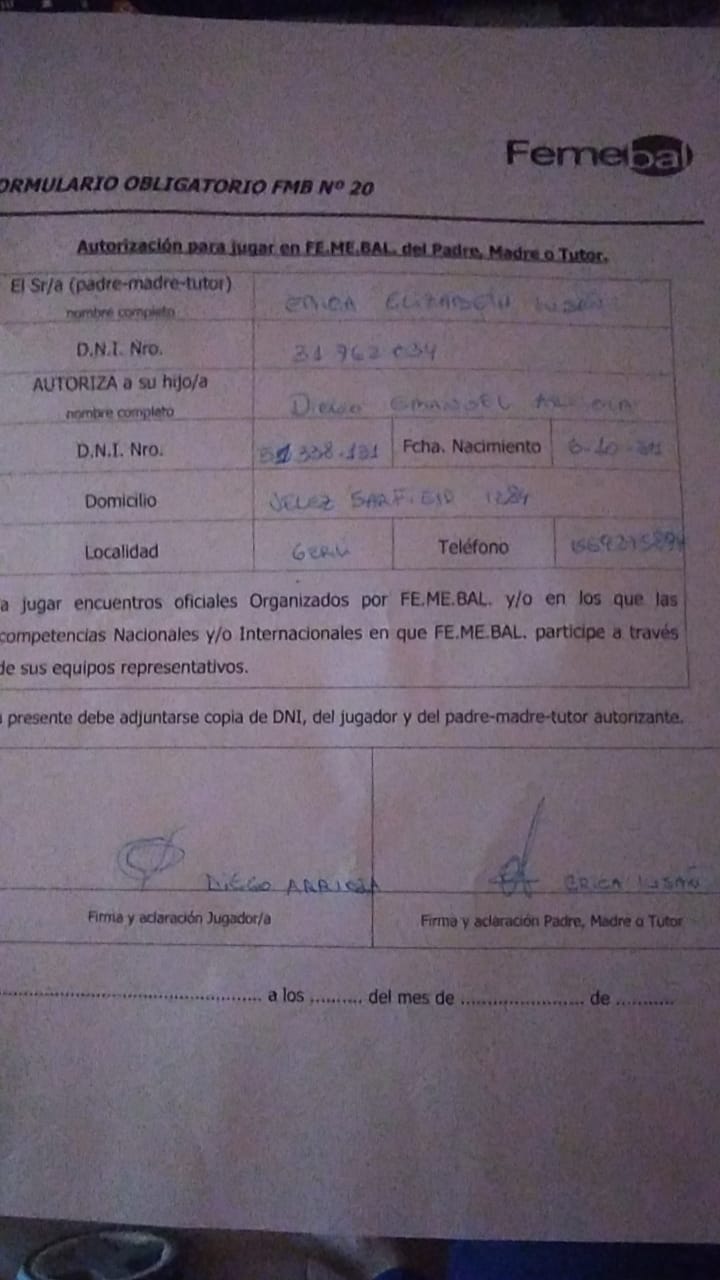 Femebal
ORMULARIO OBLIGATORIO FMB Nº 20
Autorización para jugar en FE.ME.BAL. del Padre, Madre o Tutor.
El Sr/a (padre-madre-tutor)
nombre completo
ERICA ELIZABETH
D.N.I. Nro.
31 962 034
AUTORIZA a su hijo/a
nombre completo
DIEGO EMANUEL
D.N.I. Nro.
51 338.131
Fcha. Nacimiento
Domicilio
VELEZ SARFIELD 1284
Localidad
Teléfono
a jugar encuentros oficiales Organizados por FE.ME.BAL. y/o en los que las
competencias Nacionales y/o Internacionales en que FE.ME.BAL. participe a través
de sus equipos representativos.
presente debe adjuntarse copia de DNI, del jugador y del padre-madre-tutor autorizante.
DIEGO ARRIOLA
ERICA
Firma y aclaración Jugador/a
Firma y aclaración Padre, Madre o Tutor
............................................. a los .......... del mes de ....................... de ...........